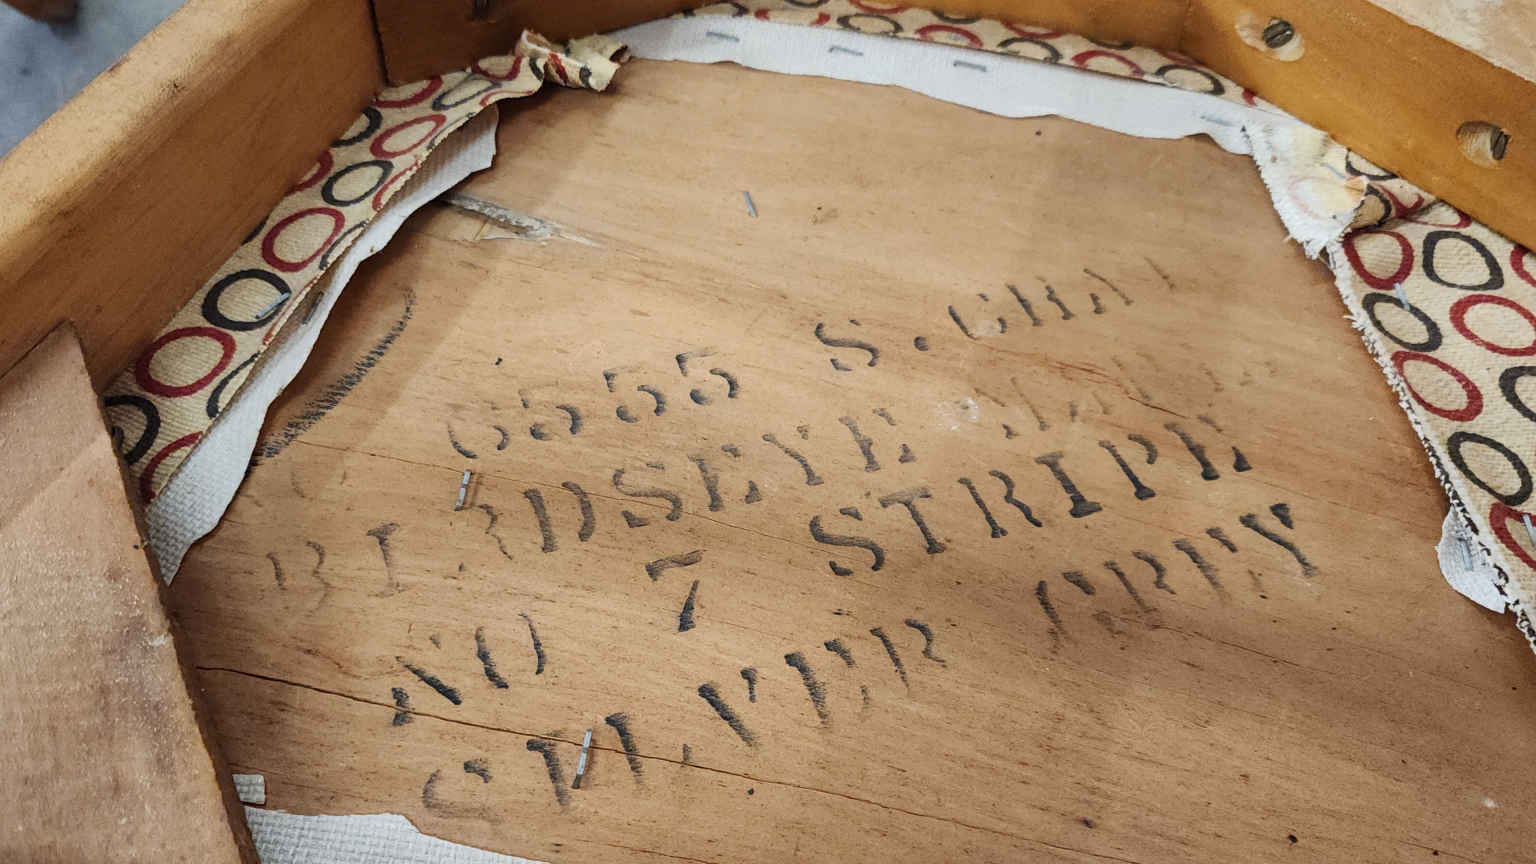 6555 S. CHAI
BIRDSEYE MAPLE
NO 7 STRIPE
SILVER GREY